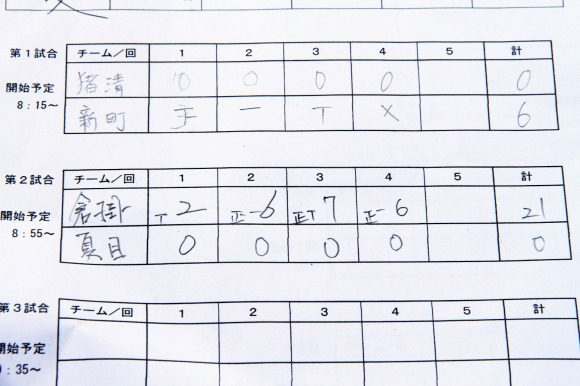 第1試合 チーム/回 1 2 3 4 5 計
猪清 0 0 0 0 0
開始予定
8:15~
新町 一 T X 6
第2試合 チーム/回 1 2 3 4 5 計
倉掛 T 2 正一 6 正T 7 正一 6 21
開始予定
8:55~
夏目 0 0 0 0 0
第3試合 チーム/回 1 2 3 4 5 計
開始予定
:35~